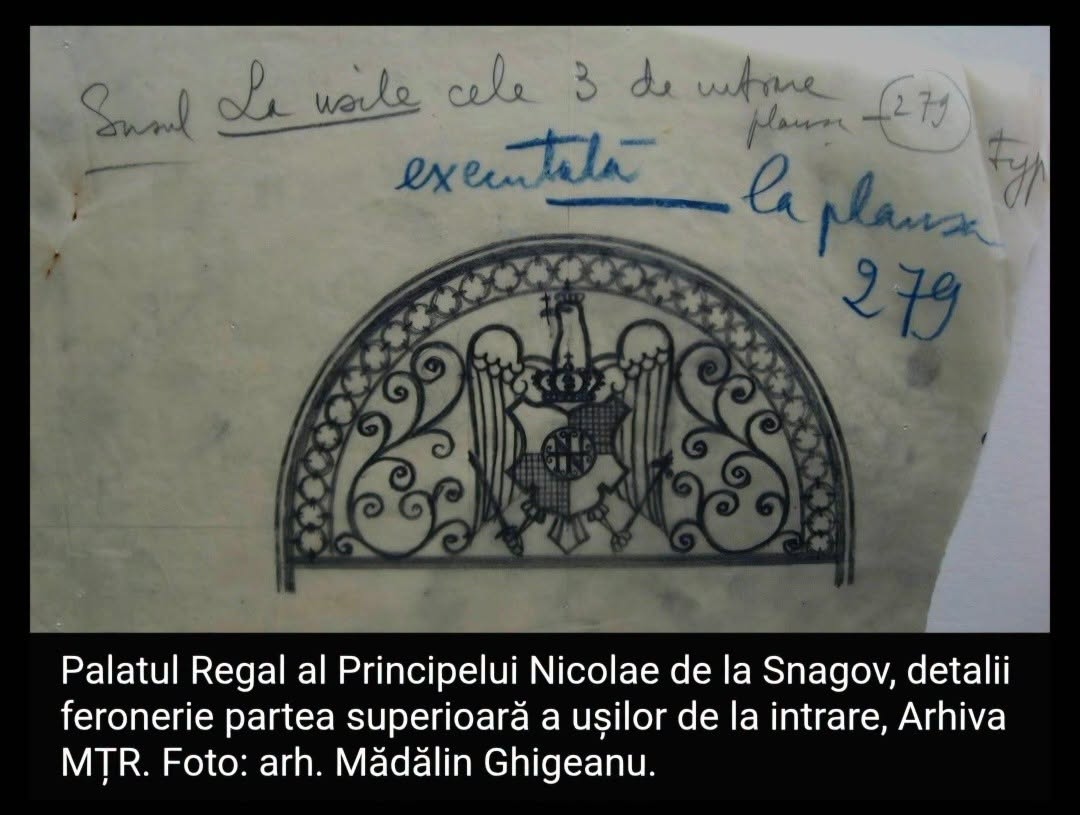 Susul La usile cele 3 de intrare
planșa - 279
Typ
executată la planșa
279
Palatul Regal al Principelui Nicolae de la Snagov, detalii
feronerie partea superioară a ușilor de la intrare, Arhiva
MȚR. Foto: arh. Mădălin Ghigeanu.